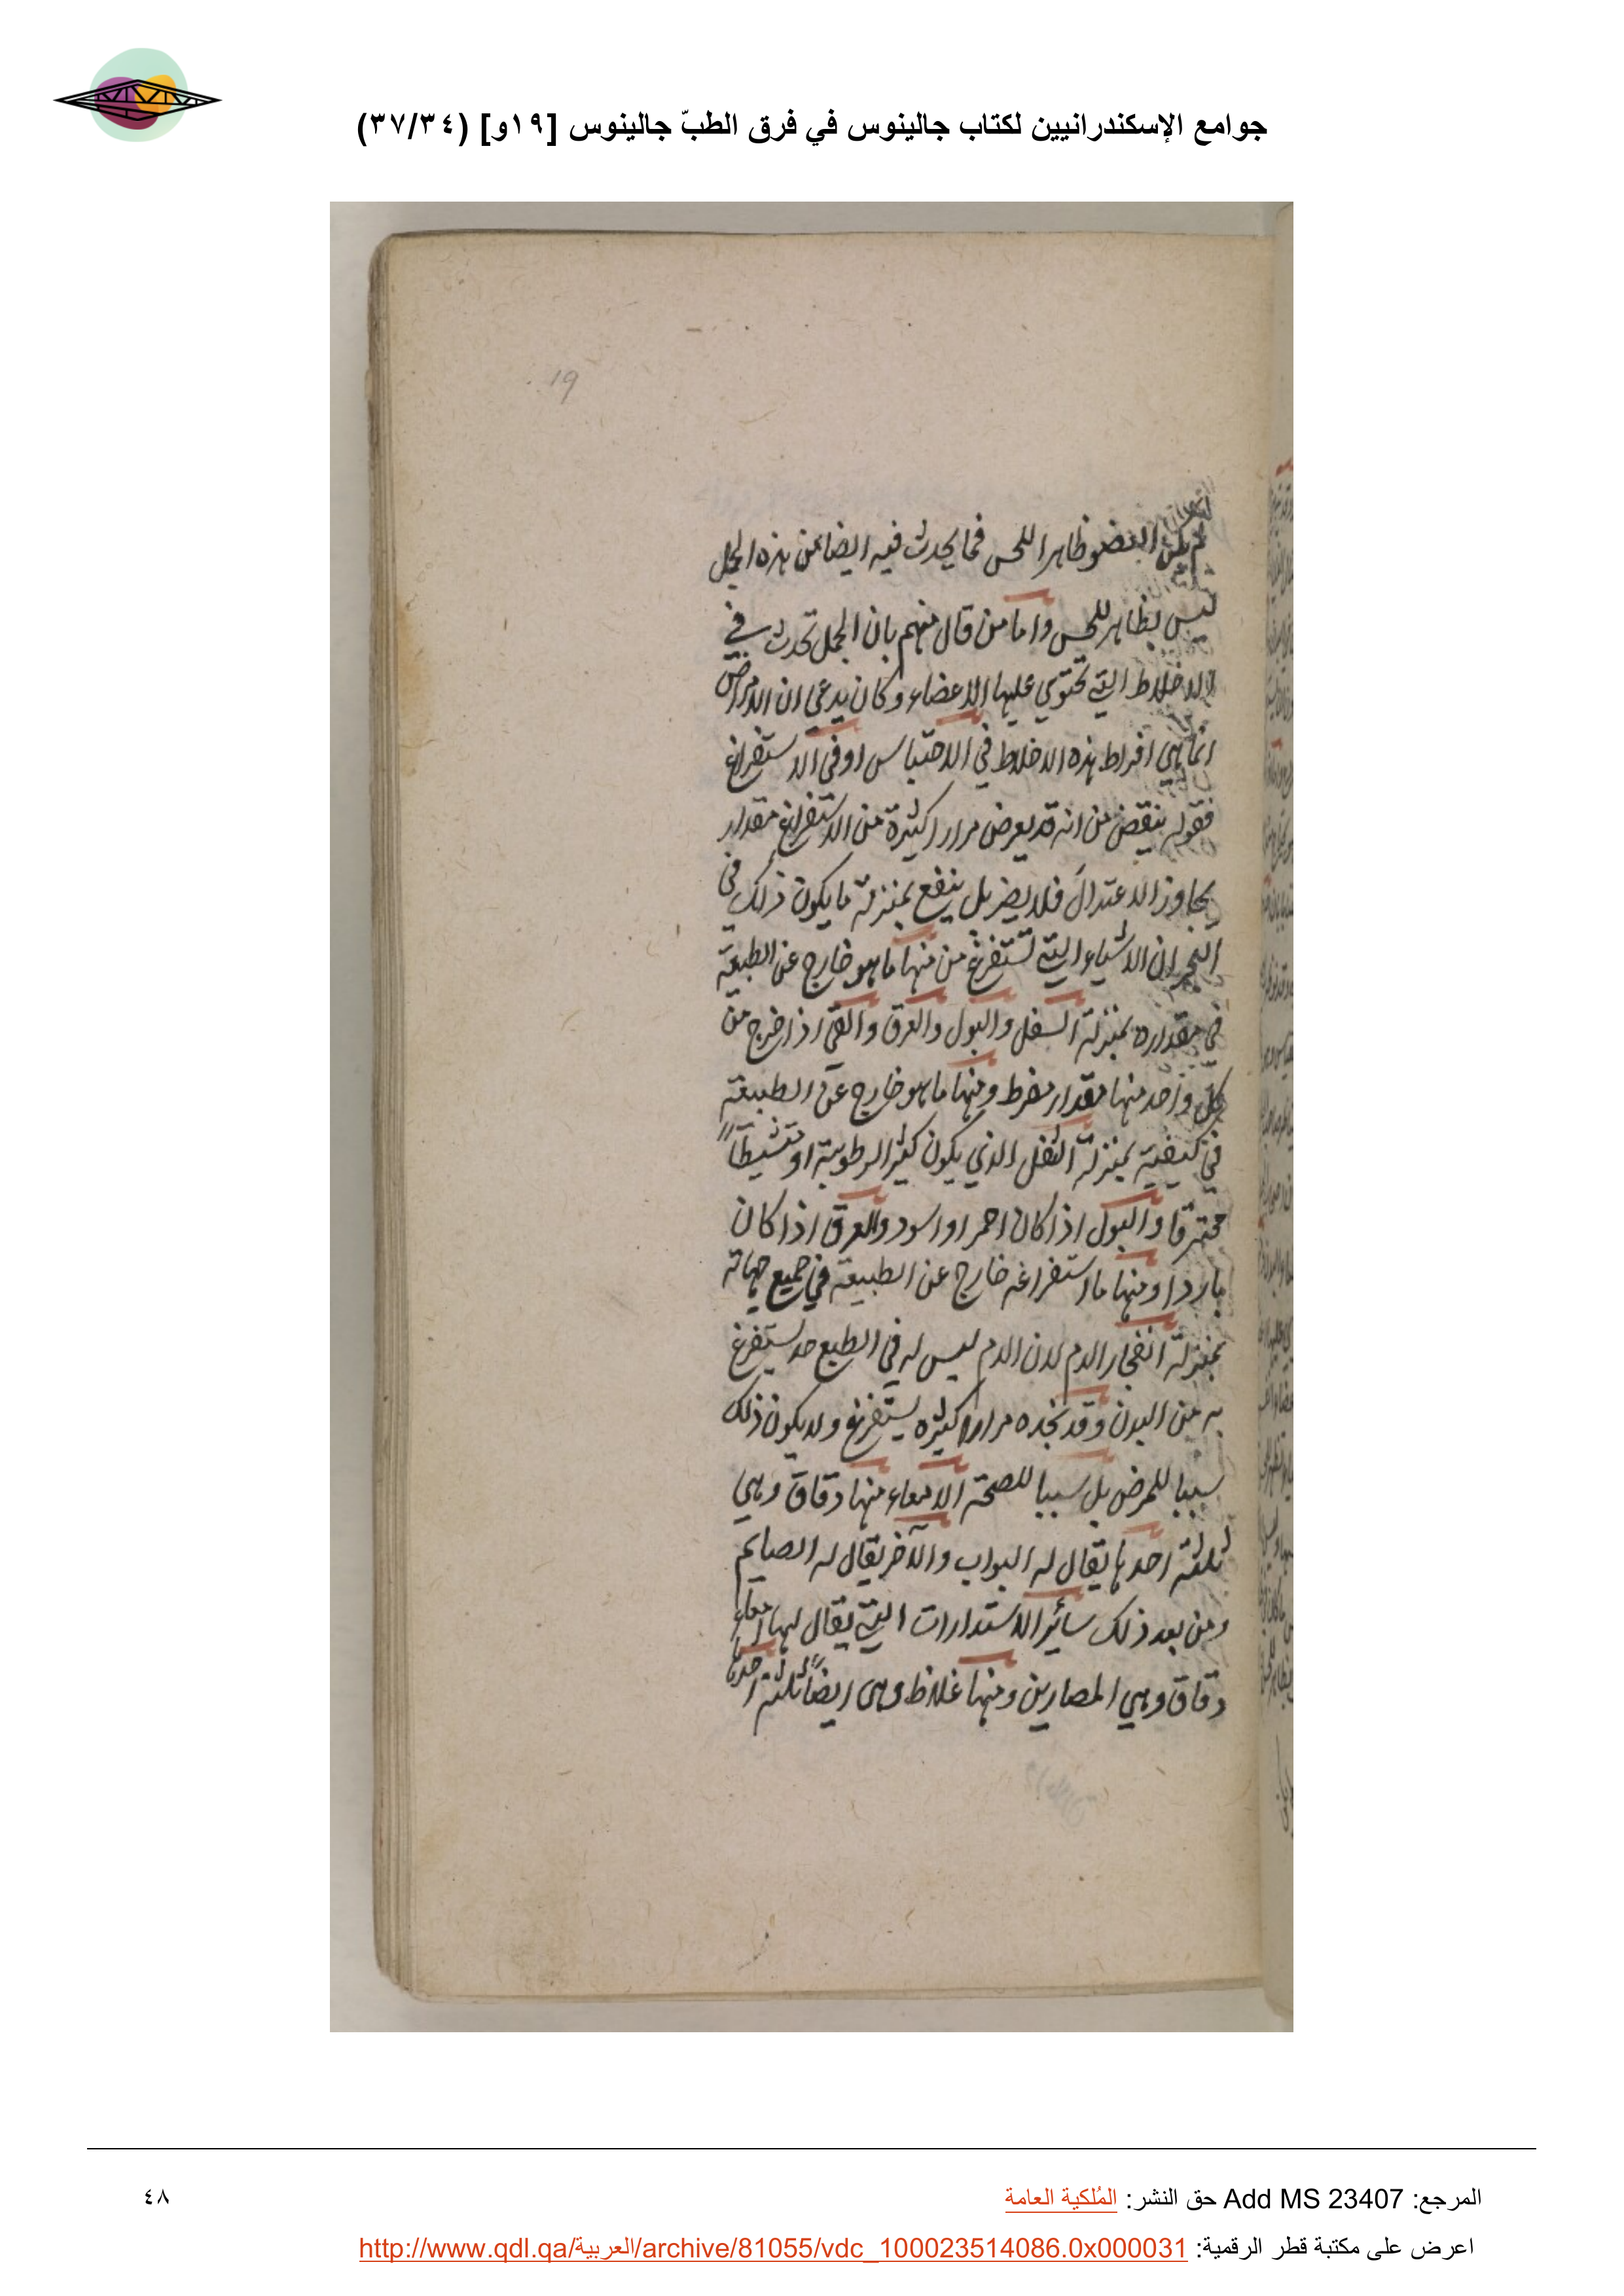 جوامع الإسكندرانيين لكتاب جالينوس في فرق الطبّ جالينوس [١٩و] (٣٧/٣٤)
19
لم يكن العضو ظاهرا للحس فما يحدث فيه ايضا من هذه الجمل
ليس بظاهر للحس واما من قال منهم بان الجمل تحدث في
الاخلاط التي تحتوي عليها الاعضاء وكان يدعي ان الامراض
انما هي افراط هذه الاخلاط في الاحتباس او في الاستفراغ
فقوله ينقض من انه قد يعرض مرارا كثيرة من الاستفراغ مقدار
يجاوز الاعتدال فلا يضر بل ينفع بمنزلة ما يكون ذلك في
البحران الاشياء التي تستفرغ من منها ما هو خارج عن الطبيعة
في مقداره بمنزلة السفل والبول والعرق والقي اذا خرج من
كل واحد منها مقدار مفرط ومنها ما هو خارج عن الطبيعة
في كيفية بمنزلة الثفل الذي يكون كثير الرطوبة او
محترقا والبول اذا كان احمر او اسود والعرق اذا كان
باردا ومنها ما استفراغه خارج عن الطبيعة في جميع جهاته
بمنزلة انفجار الدم لان الدم ليس له في الطبع حد يستفرغ
به من البدن وقد نجده مرارا كثيره يستفرغ ولا يكون ذلك
سببا للمرض بل سببا للصحة الامعاء منها دقاق وهي
ثلثة احدها يقال له البواب والآخر يقال له الصايم
ومن بعد ذلك سائر الاستدارات التي يقال لها امعاء
دقاق وهي المصارين ومنها غلاظ وهي ايضاً ثلثة احدها
المرجع: Add MS 23407 حق النشر: المُلكية العامة
٤٨
اعرض على مكتبة قطر الرقمية: http://www.qdl.qa/العربية/archive/81055/vdc_100023514086.0x000031